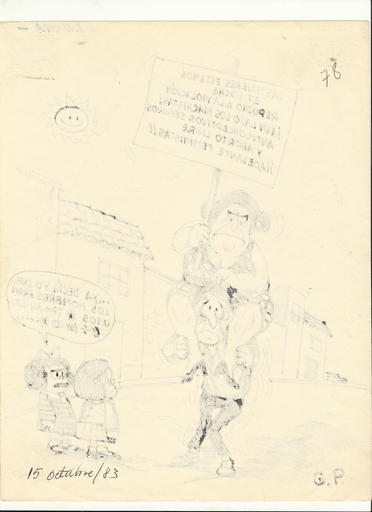 78
LAS MUJERES ESTAMOS
EN LUCHA
REPUDIO A LA VIOLACION
¡ABAJO LOS MACHISTAS!
ANTICONCEPTIVOS SEGUROS
Y ABORTO LIBRE
¡¡ADELANTE FEMINISTAS!!
...YA DECIA YO QUE
LOS HOMBRES ERAN
UNOS
15 octubre/83
G.P.